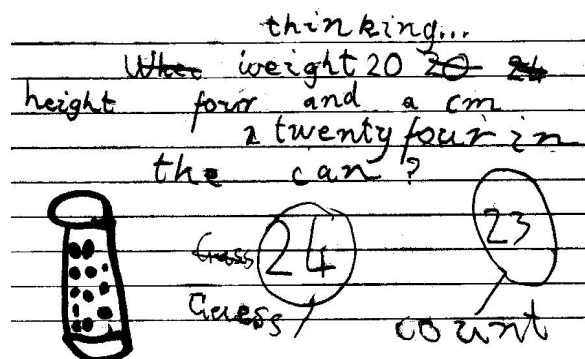 thinking...
weight 20 20 24
height four and a cm
a twenty four in
the can?
24
23
Guess
count